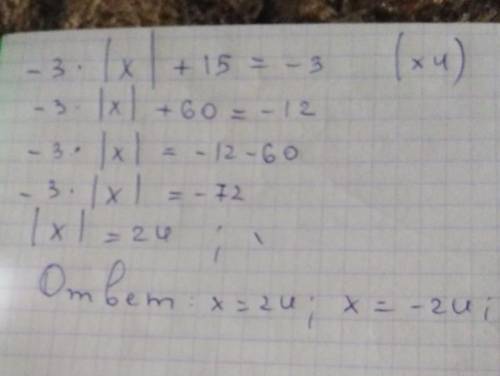 -3 · |x| + 15 = -3 (x4)
-3 · |x| + 60 = -12
-3 · |x| = -12 - 60
-3 · |x| = -72
|x| = 24 ;
Ответ: x = 24; x = -24;